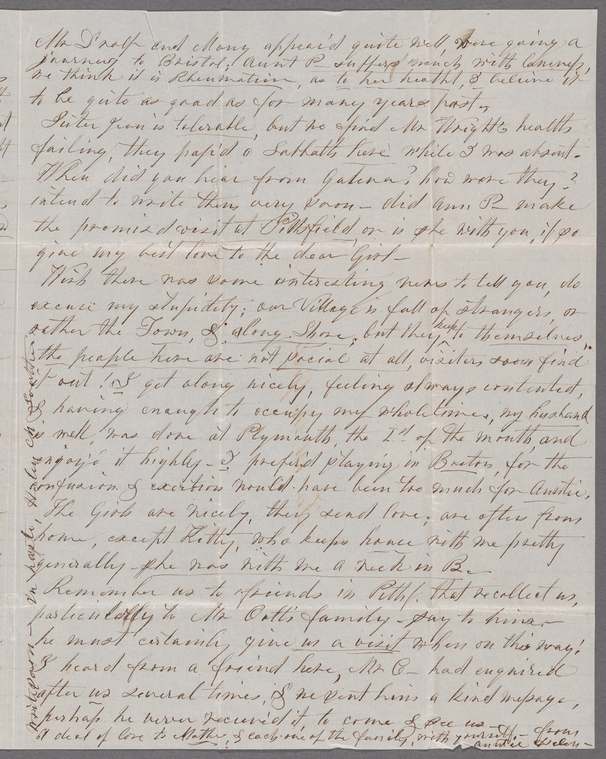 Mr D Rolf and Mary appear'd quite well, were going a
journey to Bristol. Aunt P. suffers much with lameness,
we think it is Rheumatism, as to her health, I believe it
to be quite as good as for many years past.
Sister Jean is tolerable, but we find Mr Wright's health
failing, they pass'd a Sabbath here while I was absent.
When did you hear from Galena? how were they?
intend to write them very soon - did Ann P- make
the promised visit at Pittsfield, or is she with you, if so
give my best love to the dear Girl -
Wish there was some interesting news to tell you, do
excuse my stupidity; our Village is full of strangers, or
rather the Town, & along Shore, but they keep to themselves,
the people here are not social at all, visiters soon find
it out! I get along nicely, feeling always contented,
& having enough to occupy my whole time, my husband
is well, was down at Plymouth, the 1st of the month, and
enjoy'd it highly - I prefer'd staying in Boston, for the
confusion & exertion would have been too much for Auntie.
The Girls are nicely, they send love; are often from
home, except Hatty, who keeps house with me pretty
generally - she was with me a week in B-
Remember us to friends in Pitts/. that recollect us,
particularly to Mr Otts family - say to him -
he must certainly, give us a visit when on this way.
I heard from a friend here, Mr C- had enquired
after us several times, & we sent him a kind message,
perhaps he never received it to come & see us -
A deal of love to & each one of the family, with yourself - from
auntie Helen -